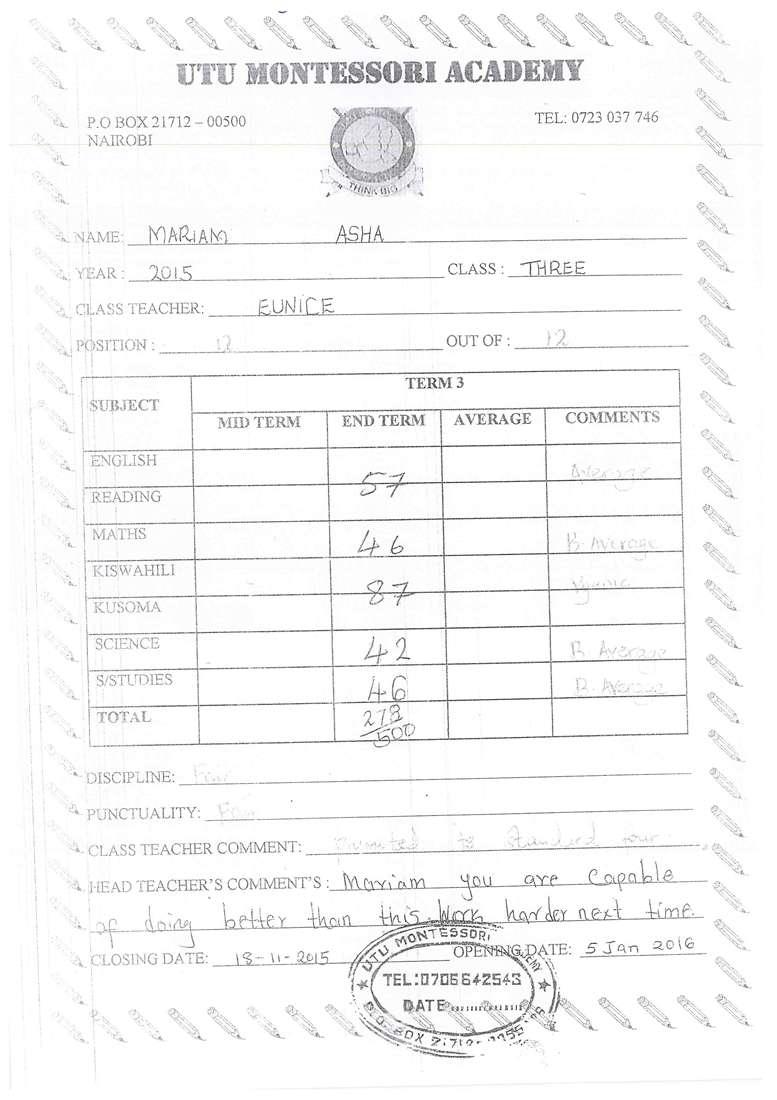 UTU MONTESSORI ACADEMY
P.O BOX 21712 – 00500
NAIROBI
TEL: 0723 037 746
THINK BIG
NAME: MARIAM ASHA
YEAR : 2015 CLASS : THREE
CLASS TEACHER: EUNICE
POSITION : 12 OUT OF : 12
SUBJECT TERM 3
MID TERM END TERM AVERAGE COMMENTS
ENGLISH 57 Average
READING
MATHS 46 B. Average
KISWAHILI 87
KUSOMA
SCIENCE 42 B. Average
S/STUDIES 46 B. Average
TOTAL 278/500
DISCIPLINE: Fair
PUNCTUALITY: Fair
CLASS TEACHER COMMENT: Promoted to Standard four
HEAD TEACHER'S COMMENT'S : Mariam you are Capable
of doing better than this. Work harder next time.
CLOSING DATE: 18-11-2015 OPENING DATE: 5 Jan 2016
UTU MONTESSORI ACADEMY
TEL:0706642543
DATE
P.O. BOX 21712